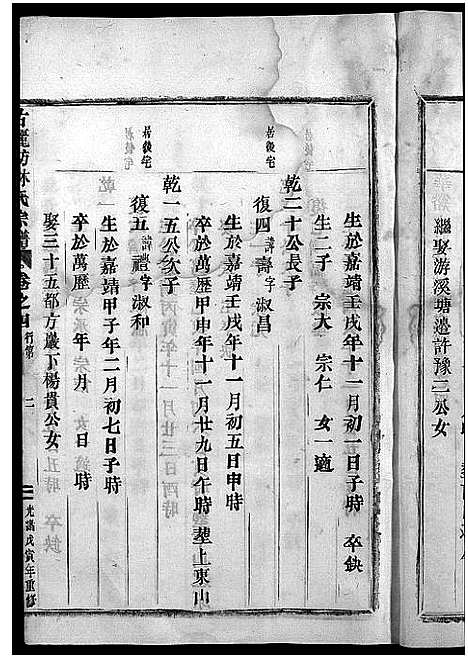 繼娶游溪塘邊許豫二公女
生於嘉靖壬戌年十一月初一日子時 卒缺
生二子 宗大 宗仁 女一適
乾二十公長子
居後宅
復四諱壽字淑昌
生於嘉靖壬戌年十一月初五日申時
卒於萬歷甲申年十一月廿九日午時塟上東山
乾一五公次子
居後宅
復五諱禮字淑和
生於嘉靖甲子年二月初七日子時
卒於萬歷 年 月 日 時
娶三十五都方巖下楊貴公女
林氏宗譜 卷之四 行第 二 光緒戊寅年重修